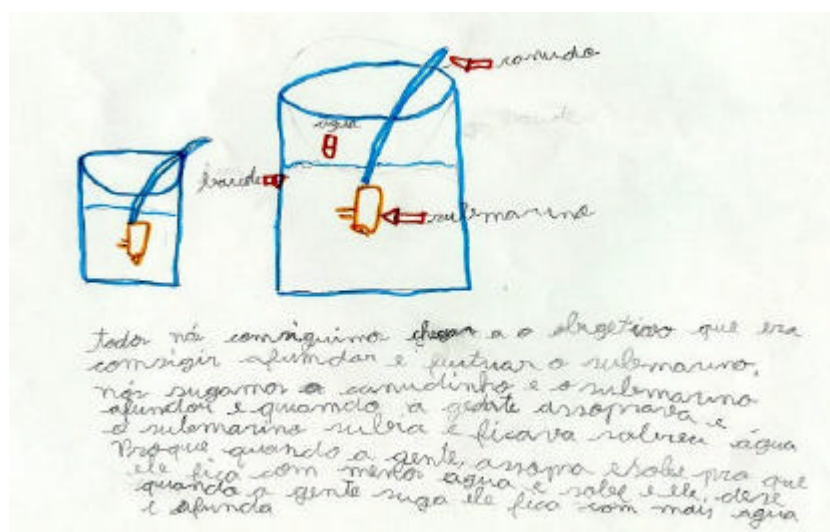 canudo
água
balde
submarino
todos nós comsiguimo chegar a o obgetivo que era
comsigir afumdar e flutuar o submarino,
nós sugamos o canudinho e o submarino
afundou e quamdo a gente assoprava e
o submarino subia e ficava sobre a água
Proque quando a gente, assopra e sobe pra que
ele fica com menos agua e sobe e ele, dese
quando a gente suga ele fica com mais agua
e afunda